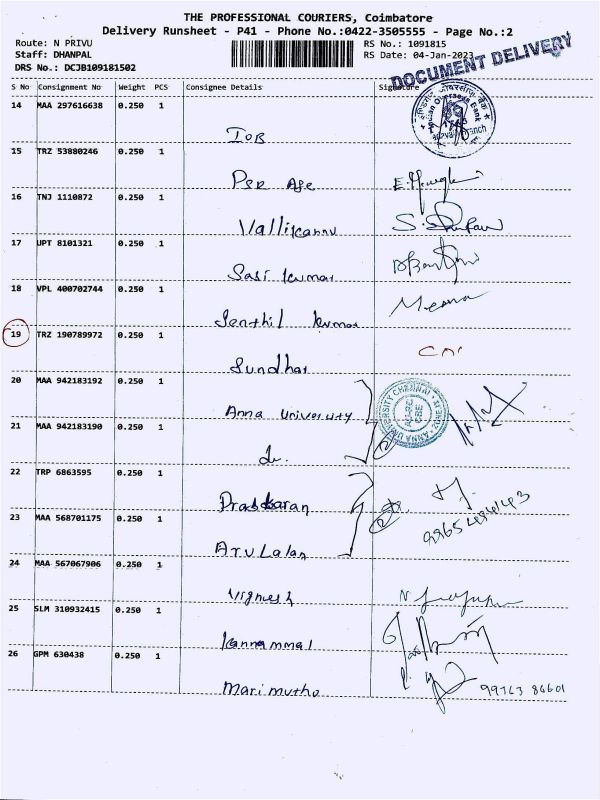 THE PROFESSIONAL COURIERS, Coimbatore
Delivery Runsheet - P41 - Phone No.:0422-3505555 - Page No.:2
Route: N PRIVU
RS No.: 1091815
Staff: DHANPAL
RS Date: 04-Jan-2023
DRS No.: DCJB109181502
DOCUMENT DELIVERY
S No Consignment No Weight PCS Consignee Details Signature
14 MAA 297616638 0.250 1
IOB
15 TRZ 53880246 0.250 1
16 TNJ 1110872 0.250 1
Vallikannu
17 UPT 8101321 0.250 1
Sasi kumar
18 VPL 400702744 0.250 1
Meena
Senthil kumar
19 TRZ 190789972 0.250 1
Sundhar
20 MAA 942183192 0.250 1
Anna University
ANNA UNIVERSITY CHENNAI
21 MAA 942183190 0.250 1
22 TRP 6863595 0.250 1
23 MAA 568701175 0.250 1
Arulalan
24 MAA 567067906 0.250 1
Vignesh
25 SLM 310932415 0.250 1
Kannammal
26 GPM 630438 0.250 1
Marimutho